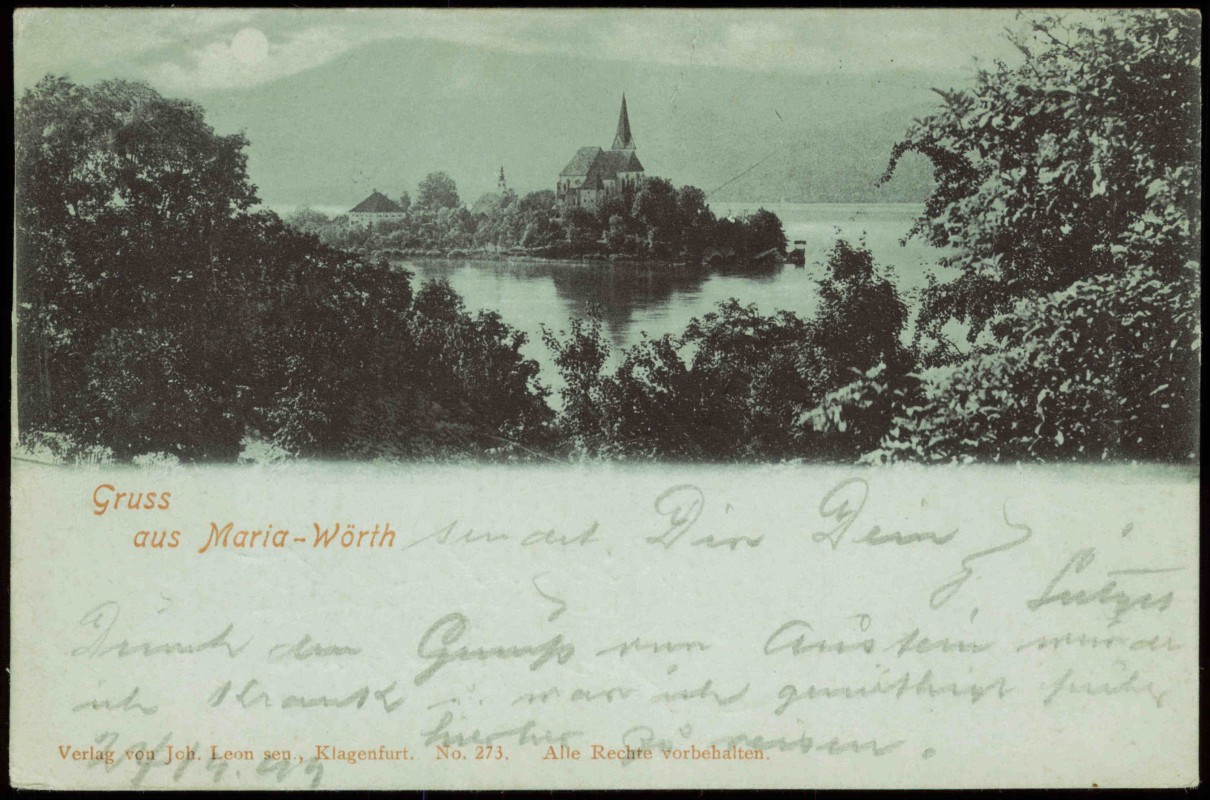 Gruss
aus Maria-Wörth sendet Dir Dein
Durch den Genuß von Austern wurde
ich krank u. war ich genöthigt früher
hierher zu reisen.
Verlag von Joh. Leon sen., Klagenfurt. No. 273. Alle Rechte vorbehalten.